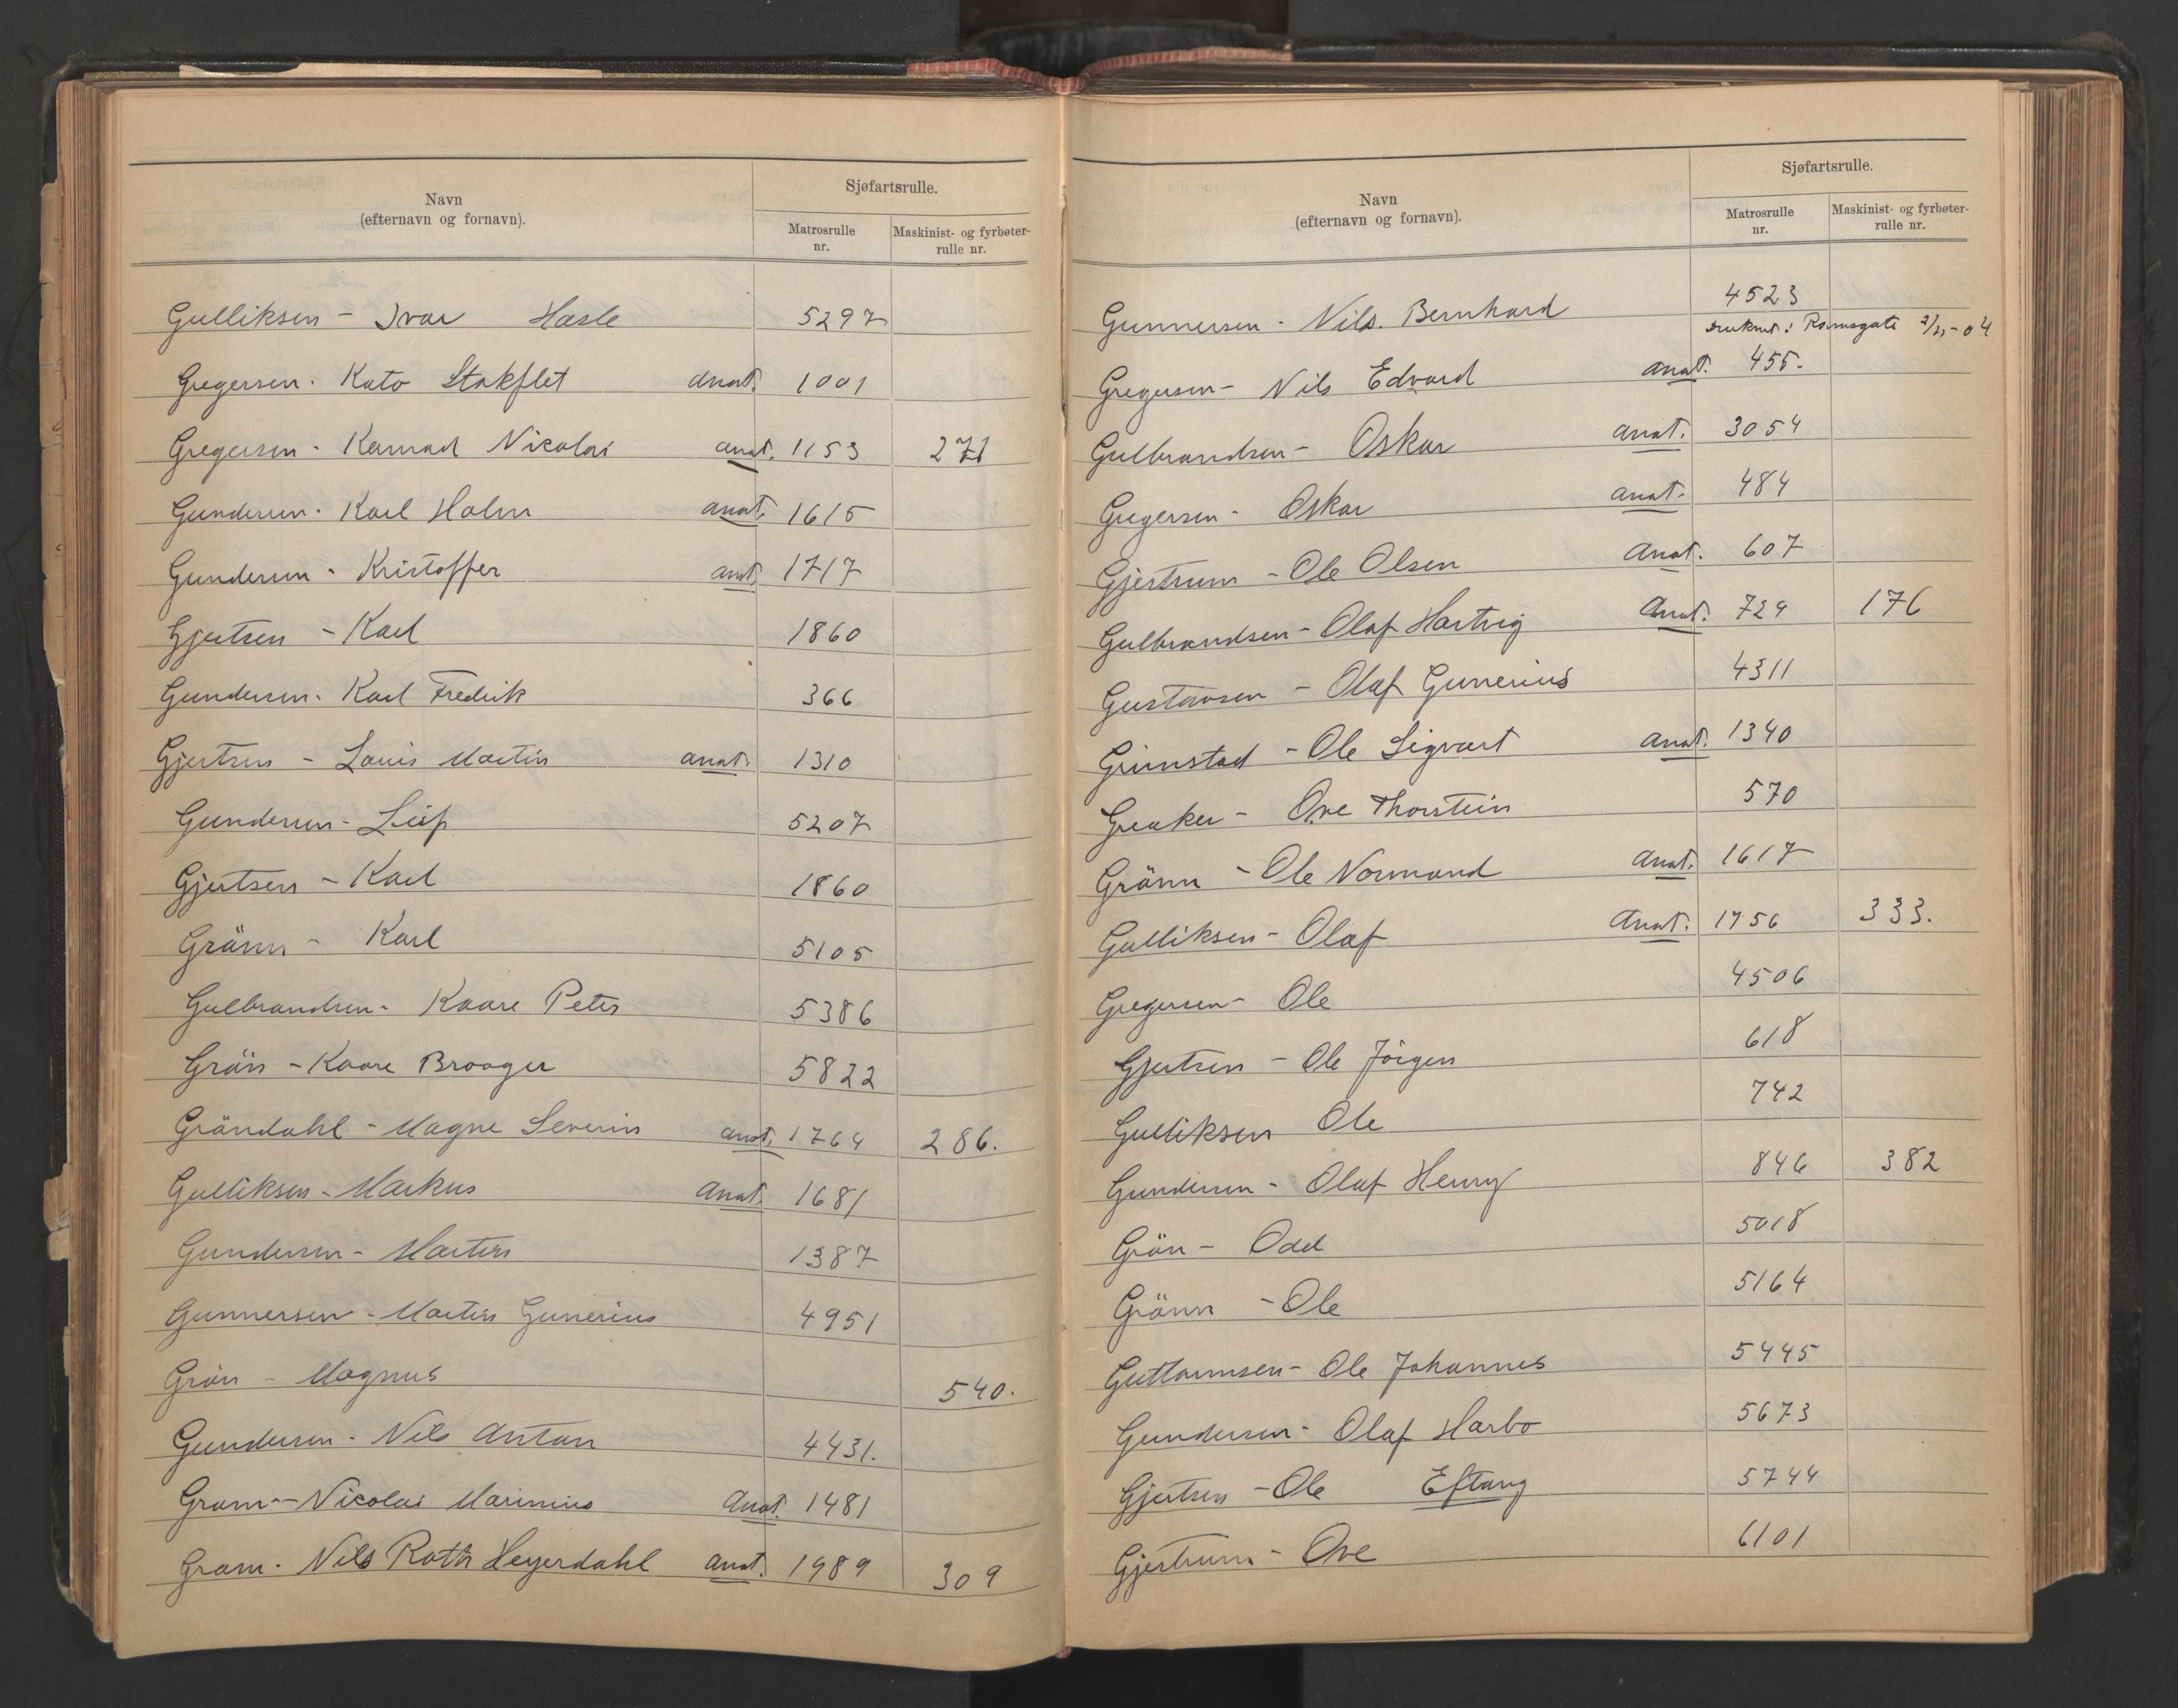 Navn
(efternavn og fornavn).
Sjøfartsrulle.
Matrosrulle
nr.
Maskinist- og fyrbøter-
rulle nr.
Gulliksen - Ivar Hasle 5297
Gregersen - Kato Stakflet anat. 1001
Gregersen - Konrad Nicolai anat. 1153 271
Gundersen - Karl Holm anat. 1615
Gundersen - Kristoffer anat. 1717
Gjertsen - Karl 1860
Gundersen - Karl Fredrik 366
Gjertsen - Louis Martin anat. 1310
Gundersen - Leif 5207
Gjertsen - Karl 1860
Grönn - Karl 5105
Gulbrandsen - Kaare Peter 5386
Grön - Kaare Broager 5822
Gröndahl - Magne Severin anat. 1764 286.
Gulliksen - Markus Anat. 1681
Gundersen - Martin 1387
Gunnersen - Martin Gunerius 4951
Grön - Magnus 540.
Gundersen - Nils Anton 4431.
Gram - Nicolai Marinius Anat. 1481
Gram - Nils Roth Heyerdahl anat. 1989 309
Navn
(efternavn og fornavn).
Sjøfartsrulle.
Matrosrulle
nr.
Maskinist- og fyrbøter-
rulle nr.
Gunnersen - Nils Bernhard 4523
druknet i Ramsgate
Gregersen - Nils Edvard anat. 455.
Gulbrandsen - Oskar anat. 3054
Gregersen - Oskar anat. 484
Gjertrum - Ole Olsen Anat. 607
Gulbrandsen - Olaf Hartvig Anat. 729 176
Gustavsen - Olaf Gunerius 4311
Grimstad - Ole Sigvart anat. 1340
Greaker - Ove Thorstein 570
Grönn - Ole Normand Anat. 1617
Gulliksen - Olaf Anat. 1756 333.
Gregersen - Ole 4506
Gjertsen - Ole Jörgen 618
Gulliksen Ole 742
Gundersen - Olaf Henry 846 382
Grön - Odd 5018
Grönn - Ole 5164
Guttormsen - Ole Johannes 5445
Gundersen - Olaf Harbo 5673
Gjertsen - Ole Eftang 5744
Gjertrum - Ove 6101